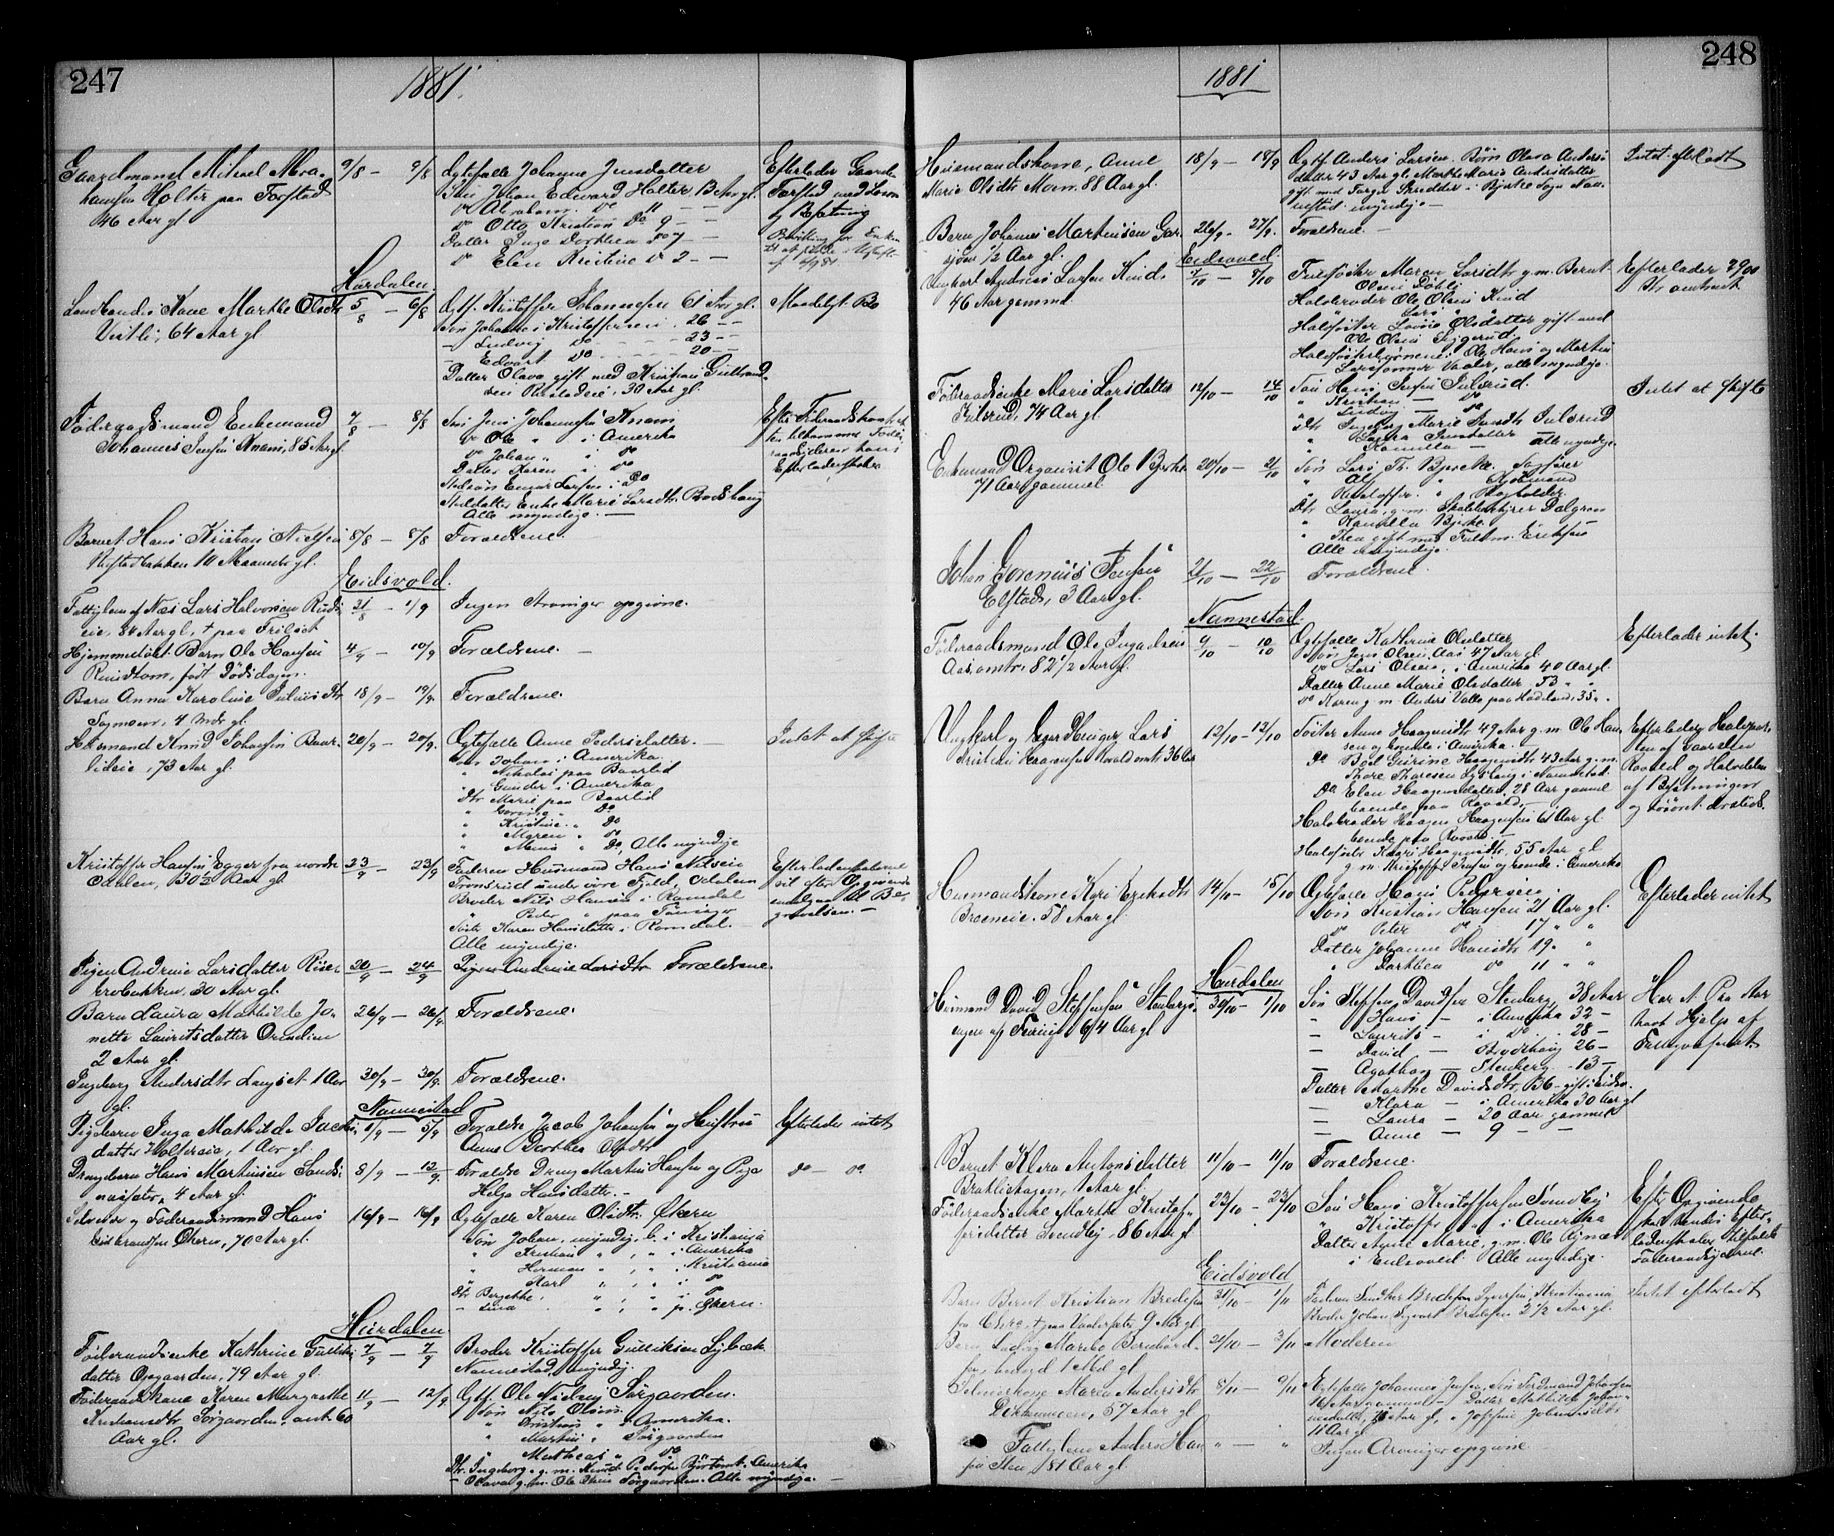 247
1881.
Gaardmand Mikael Abra-
hamsen Holter paa Forstad
46 Aar gl
9/8 — 9/8
Ægtefælle Johanne Jensdatter
Søn Johan Edvard Holter 13 Aar gl.
do Abraham do 11 — —
do Otto Kristian do 9 — —
Datter Inga Dorthea do 7 —
do Elen Kristine do 2 — —
Efterlader Gaarden
Forstad med Løsøre
og Besætning
Hurdalen
Marthe Olsdtr
Veitli, 64 Aar gl
5/8 — 6/8
Ægtf. Kristoffer Johannesen 61 Aar gl.
Søn Johannes Kristoffersen 26 — —
— Ludvig do 23 — —
— Edvart do 20 — —
Datter Olava gift med Kristian Gulbrand-
sen 30 Aar gl.
Føderaadsmand Enkemand
Johannes Jensen Knam, 85 Aar gl
7/8 — 8/8
Søn Jens Johannesen Knam
do Ole " i Amerika
do Johan " i do
Datter Karen i do
Stedsøn Einar Larsen i do
Steddatter Enke Marie Larsdtr. Bodshaug
Alle myndige. —
Barnet Hans Kristian Nielsen
10 Maaneder gl.
8/8 — 8/8
Forældrene.
Eidsvold.
Fattiglem af Næs Lars Halvorsen Ruds-
eie, 84 Aar gl, † paa Frilset
31/8 — 1/9
Ingen Arvinger opgivne.
Hjemmedøbt Barn Ole Hansen
Rundtom, født Dødsdagen.
4/9 — 10/9
Forældrene. —
Barn Anna Karoline Juliusdtr
Sagmoen, 4 Mdr gl.
18/9 — 19/9
Forældrene.
Husmand Knud Johansen Baar-
lideie, 73 Aar gl.
20/9 — 20/9.
Ægtefælle Anne Pedersdatter. —
Søn Johan i Amerika
" Nikolai paa Baarlid
" Gunder i Amerika
Dtr Marie paa Baarlid
" do
" Kristine " do
" Maren " do
" do, Alle myndige
Intet at skifte
Kristoffer Hansen Egger fra nordre
Odalen, 30 1/2 Aar gl.
23/9 — 23/9
Faderen Husmand Hans Nilsen
Trønsrud under øvre Fjeld, Odalen
Broder Nils Hansen i Romdal
" Peder " paa
Søster Karen Hansdatter i Romdal.
Alle myndige.
Pigen Andrine Larsdatter Risen-
brobakken, 30 Aar gl.
20/9 — 24/9
Pigen Andrine Larsdtr Forældrene.
Barn Laura Mathilde Jo-
nette Lauritsdatter
2 Aar gl.
26/9 — 26/9
Forældrene.
Ingeborg Andersdtr Langset 1 Aar
gl.
30/9 — 30/9.
Forældrene.
Nannestad
Pigebarn Inga Mathilde Jacobs-
datter Holtereie, 1 Aar gl
1/9 — 5/9
Forældre Jacob Johansen og Hustru
Anne Dorthea Olsdtr
Efterlader intet
Drengebarn Hans Martinsen Sands-
næseter, 4 Aar gl.
8/9 — 12/9.
Forældre Dreng Martin Hansen og Pige
Helga Hansdatter. —
do — do
Selveier og Føderaadsmand Hans
Økern, 70 Aar gl.
16/9 — 16/9
Ægtefælle Karen Olsdtr. Økern
Søn Johan, myndig, b. i Kristiania
" Kristian " , " i Amerika
" Herman " , " i Kristiania
" Karl " , " i do
Dtr Bergitte, " , " i do
— Lina " , " p. Økern.
Hurdalen.
Føderaadsenke Kathrine Gulliks-
datter Opgaarden, 79 Aar gl.
7/9 — 7/9
Broder Kristoffer Gulliksen Lybæk
Nannestad, myndig.
Føderaadskone Karen Margrethe
Kristiansdtr Sørgaarden, omt. 60
Aar gl.
11/9 — 12/9.
Ægtf. Ole Nielsen Sørgaarden.
Søn Nils Olsen
" Kristian " i Amerika.
" Martin " Sørgaarden
" Mathias " do
Dtr. Ingeborg g. m. Knud Pedersen Amerika
— Olava g. m. Ole Olsen Sørgaarden. Alle myndige. —
248
1881
Husmandskone, Anne
Marie Olsdtr Moen, 88 Aar gl.
18/9 — 18/9
Ægtf. Anders Larsen. Børn Olava Anders-
datter 43 Aar gl. Marthe Marie Andersdatter
gift med Jørgen Skredder i Bjerke Sogn Nan-
nestad. myndige —
Intet efterladt
Barn Johannes Martinsen Gar-
sjøen 1/2 Aar gl.
26/9 — 27/9.
Forældrene. —
Eidsvold.
Ungkarl Andreas Larsen Kind
46 Aar gammel
7/10 — 8/10
Søster Maren Larsdtr g. m. Bernt
Olsen Døhli
Halvbroder Ole Olsen Kind
" Lars " "
Halvsøster Lovise Olsdatter gift med
Ole Olsen Seggerud.
Halvsøsterbørnene: Ole, Hans og Martin
Larssønner Vaaler, alle myndige.
Efterlader 2900
Kr omtrent
Føderaadsenke Marie Larsdatter
Julsrud, 74 Aar gl
12/10 — 14/10
Søn Hans Jensen Julsrud.
" Kristian — do
" Ludvig — do
Dtr. Ingeborg Marie Jensdtr Julsrud
" Laura Jensdatter
" Kamilla — alle myndige.
Intet at skifte
Enkemand Organist Ole Bjerke
71 Aar gammel
20/10 — 21/10
Søn Lars Th. Bjerke. Sagfører
" Alf " Sjømand
" Kristoffer. " Bogholder
Dtr. Laura, g. m. Skolebestyrer Dalgren
" Kamilla Bjerke
" Thea gift med Fuldm. Eriksen
Alle myndige.
Johan Gorenius Jensen
Elstad, 3 Aar gl.
21/10 — 22/10
Forældrene.
Nannestad.
Føderaadsmand Ole Ingvaldsen
Aas omtr. 82 1/2 Aar gl.
9/10 — 10/10
Ægtefælle Kathrine Olsdatter
Søn Jens Olsen Aas 47 Aar gl
do Lars Olsen, i Amerika 40 Aar gl.
Datter Anne Marie Olsdatter 53 " "
do Karen g. m. Anders Valle paa Hadeland, 35 " .
Efterlader intet.
Ungkarl og Lars
Kristian Haagensen Raaold omt. 36 Aar
12/10 — 12/10
Søster Anne Haagensdtr 49 Aar g. m. Ole Han-
sen og boende i Amerika.
do Boel Gurine Haagensdtr 43 Aar g. m.
Thore Thoresen Lyshaug i Nannestad.
do Elen Haagensdatter 28 Aar gammel
boende paa Raaold —
Halvbroder Haagen Haagensen 61 Aar gl.
boende paa Raaold —
Halvsøster Kari Haagensdtr, 55 Aar gl
g. m. Kristoffer Jensen og boende i Amerika
Efterlader Halvpar-
ten af Gaarden
Raaold og Halvdelen
af Besætningen
og Løsøret derstæds.
Husmandskone Kari Eriksdtr
Broeneie. 58 Aar gl.
14/10 — 15/10
Ægtefælle Hans Pedersen.
Søn Kristian Hansen 21 Aar gl.
do Peter do 17 " "
Datter Johanne Hansdtr 19 " "
" Dorthea do 11 " "
Efterlader intet
Hurdalen
Husmand David Steffensen Stenbergs-
engen af 64 Aar gl
30/10 — 1/10
Søn Steffen Davidsen Stenberg, 38 Aar
— Hans — i Amerika 32 —
— Laurits — i do — 28 —
— David — Brodshaug 26 —
— Agathon — Stenberg. 13 —
Datter Marthe Davidsdtr, 36 — gift i Eidsv.
— Klara — i Amerika 30 Aar gl
— Laura — 20 Aar gammel
— Anne — 9 — —
Har et Par Aar
havt Hjelp af
Fattigvæsenet.
Barnet Klara Antonsdatter
Bratlihagen, 1 Aar gl.
11/10 — 11/10
Forældrene.
Føderaadsenke Marthe Kristof-
fersdatter Sundby, 86 Aar gl
23/10 — 23/10
Søn Hans Kristoffersen Sundby
" Kristoffer " i Amerika
Datter Anne Marie, g. m. Ole
i Eidsvold Alle myndige.
Efter Opgivende
skal hendes Efter-
ladenskaber tilfalde
Føderaadsyderne.
Eidsvold
Barn Bernt Kristian Bredesen
9 Aar gl
31/10 — 1/11
Faderen Bredesen Kristiania
Broder Johan Sigvart Bredesen 2 1/2 Aar gl.
Intet efterladt
Barn Ludvig Marino Bernhard-
sen, 1 Md. gl.
21/10 — 3/11
Moderen
Selveierkone Maren Andersdtr
57 Aar gl
8/11 — 9/11
Ægtefælle Johannes Jensen, Søn Ferdinand Johansen
16 Aar gammel — Datter Mathilde Johan-
nesdatter, Aar gl, " Josefine Johannesdtr
11 Aar gl
Fattiglem Anders Han-
sen Sten, 81 Aar gl
" — "
Ingen Arvinger opgivne